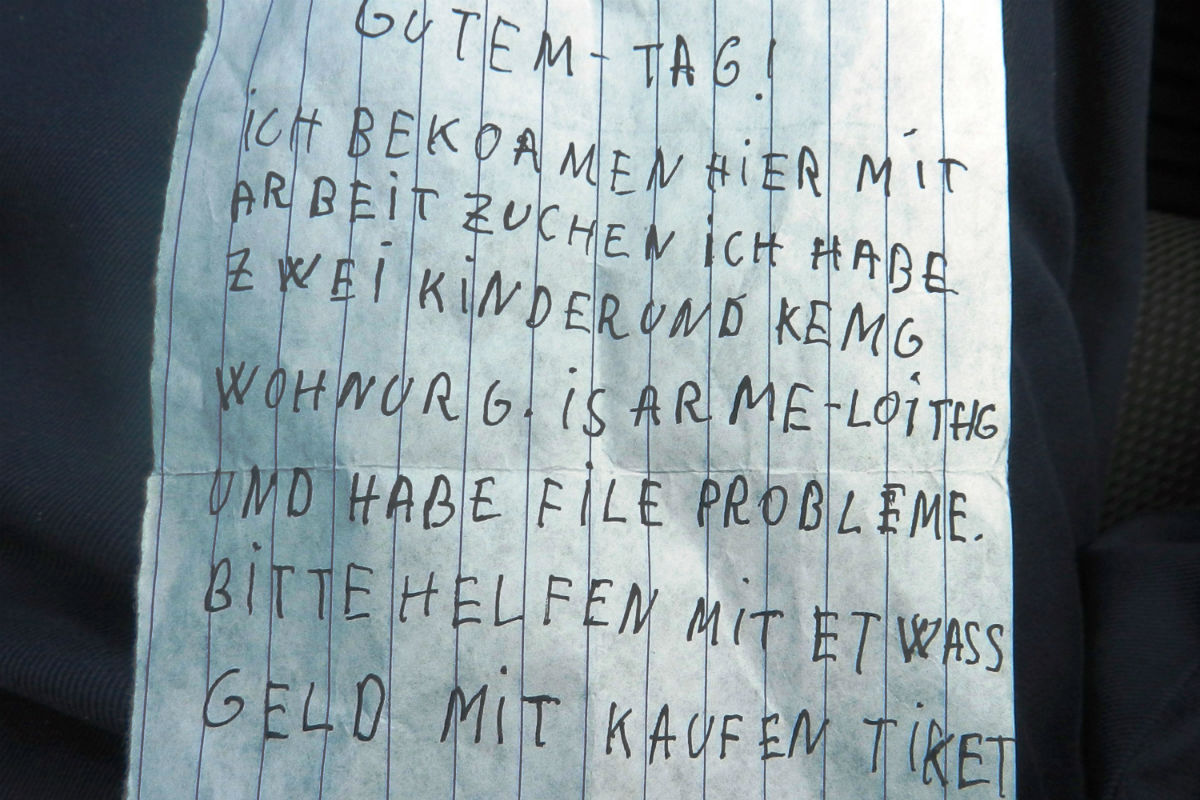 GUTEM-TAG!
iCH BEKOAMEN HiER MiT
ARBEiT ZUCHEN iCH HABE
ZWEi KiNDER UND KEMG
WOHNURG. iS ARME-LOiTHG
UND HABE FiLE PROBLEME.
BiTTE HELFEN MiT ETWASS
GELD MiT KAUFEN TiKET